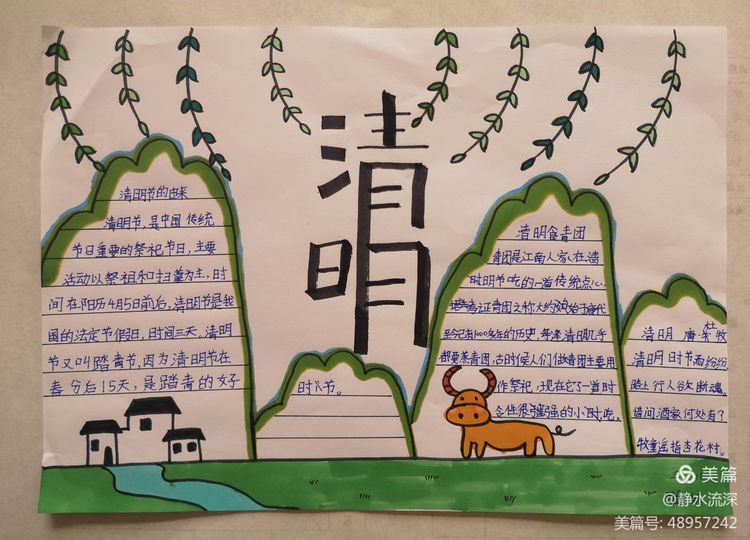 清明
清明节的由来
清明节,是中国传统
节日重要的祭祀节日,主要
活动以祭祖和扫墓为主,时
间在阳历4月5日前后,清明节是我
国的法定节假日,时间三天。清明
节又叫踏青节,因为清明节在
春分后15天,是踏青的好
时节。
清明食青团
青团是江南人家在清
明时节吃的一道传统点心,
青团之称大约始于唐代
至今已有1000多年的历史,每逢清明几乎
都要蒸青团,古时候人们做青团主要用
作祭祀,现在它了一道时
令性很强的小吃。
清明 唐 杜牧
清明时节雨纷纷
路上行人欲断魂。
借问酒家何处有?
牧童遥指杏花村。
美篇
@静水流深
美篇号: 48957242